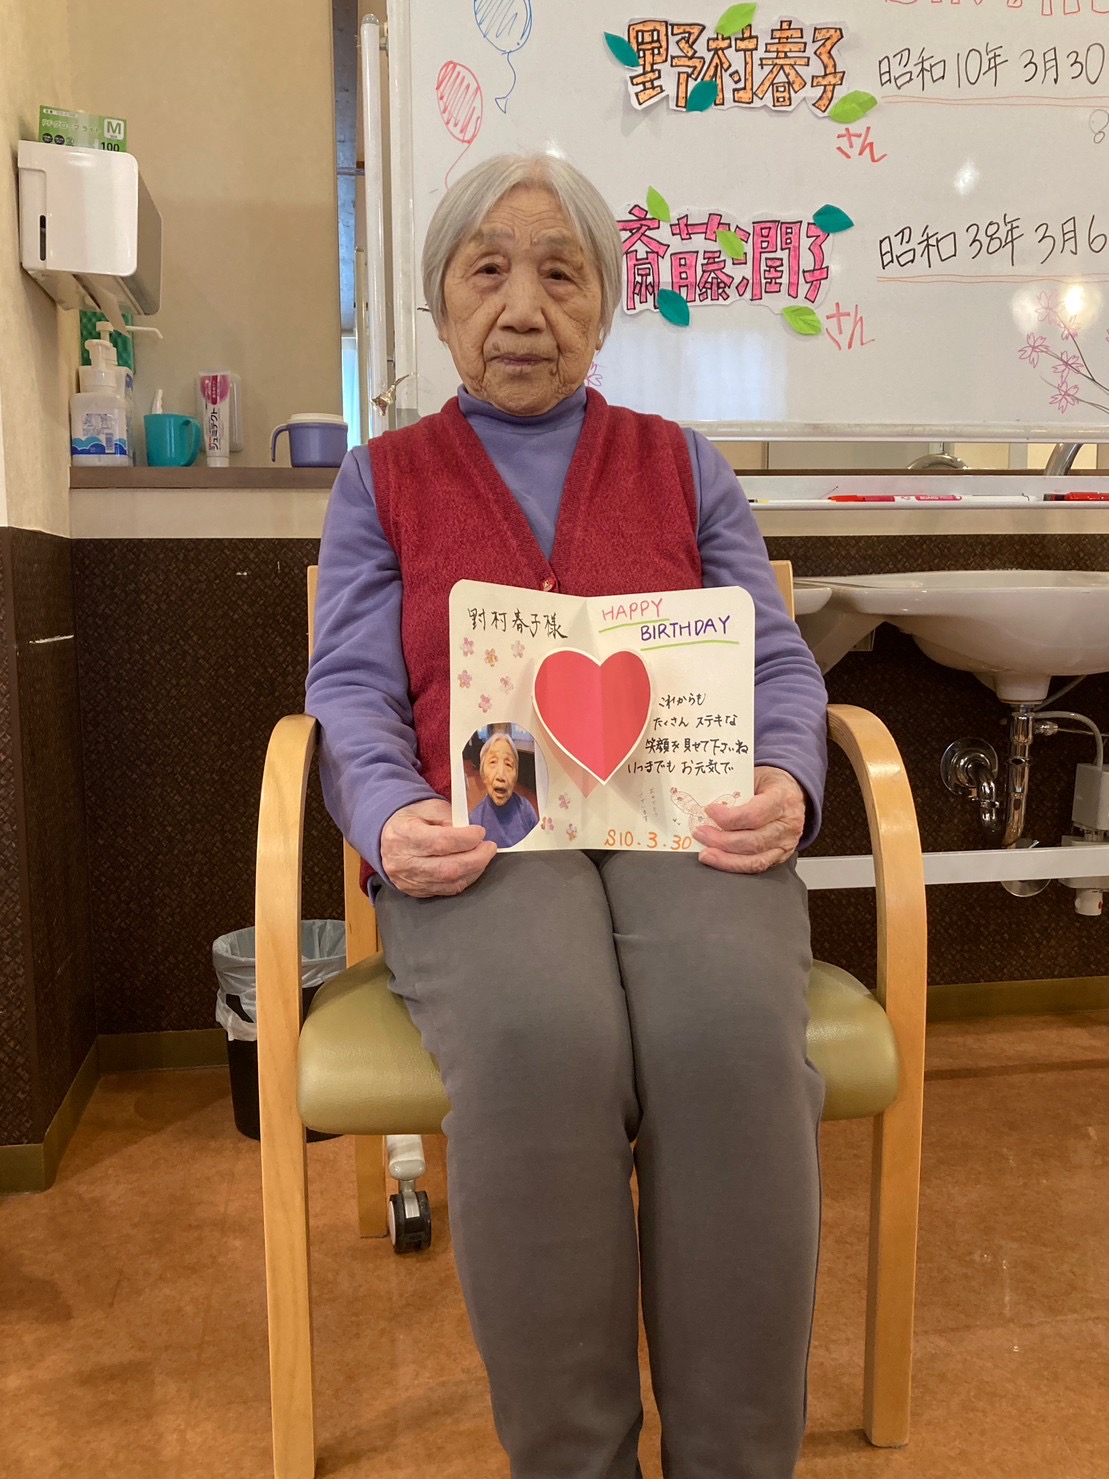 野村春子
さん
昭和10年3月30
斎藤潤子
さん
昭和38年3月6
M
100
野村春子様
HAPPY
BIRTHDAY
これからも
たくさん ステキな
笑顔を見せて下さいね
いつまでも お元気で
S10.3.30